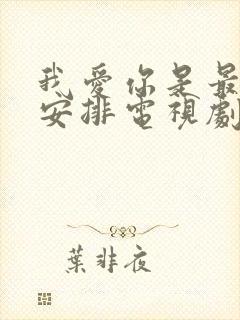 我愛你是最
安排電視劇
葉非夜